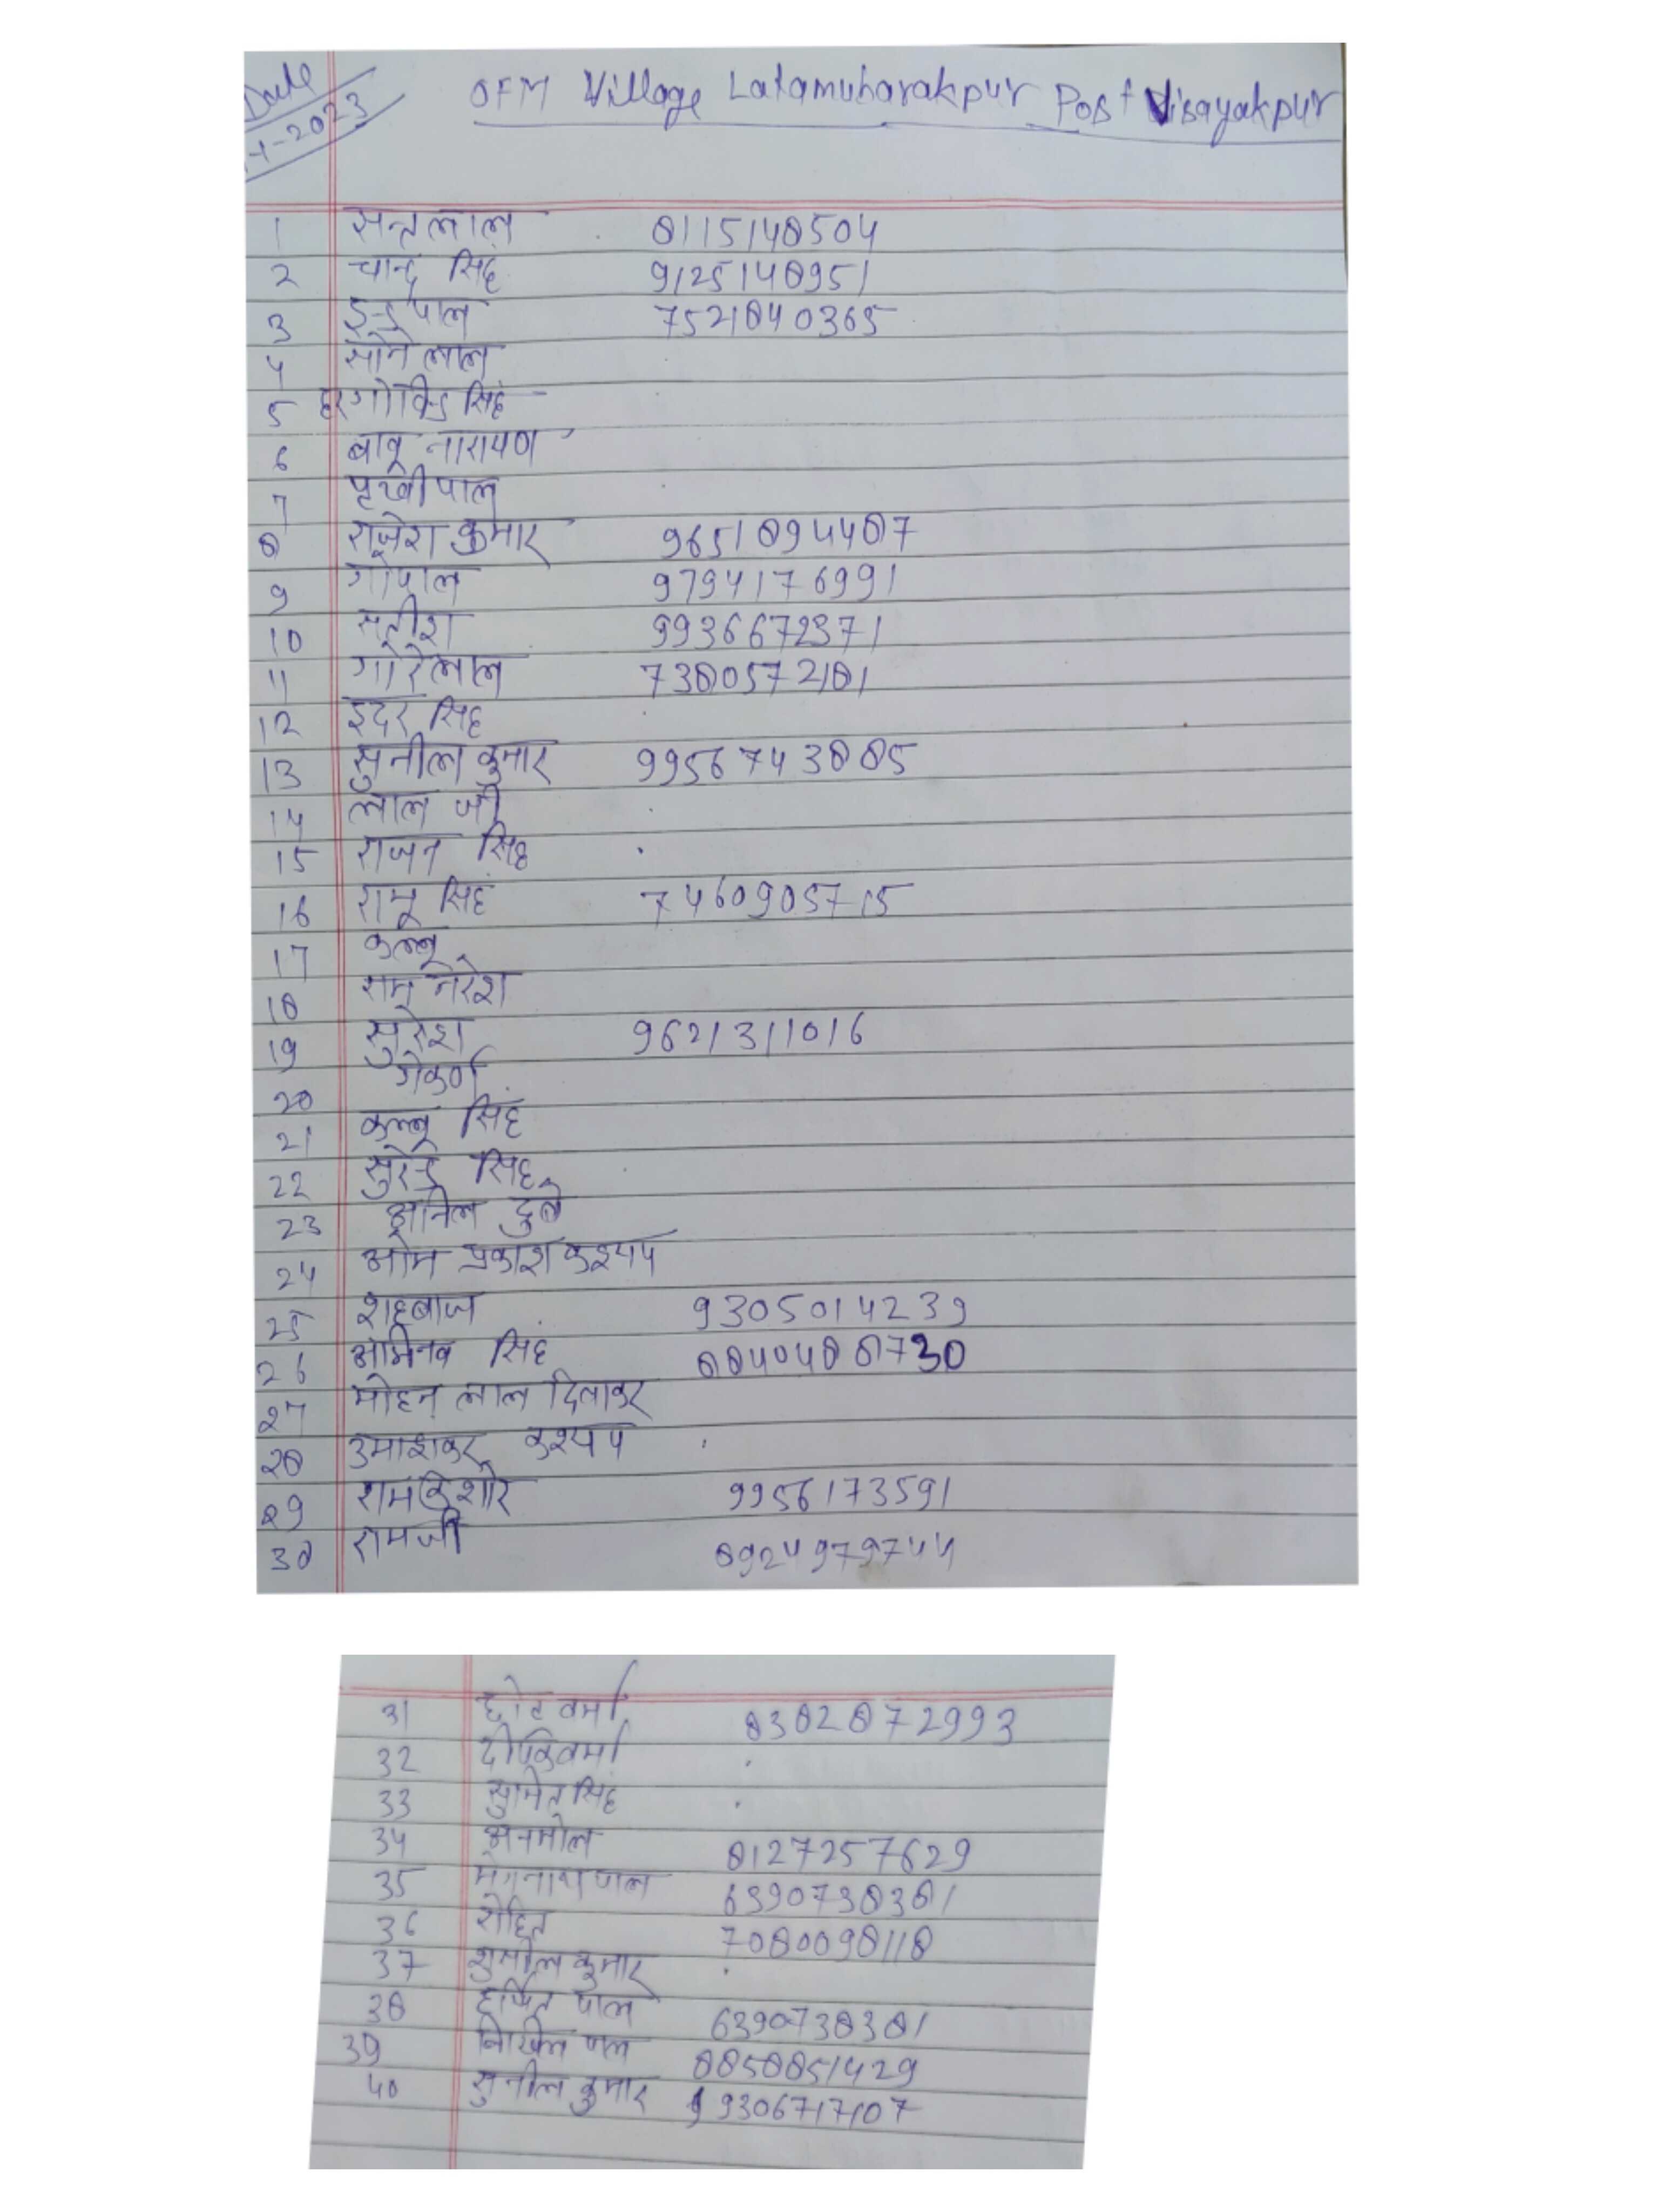 Date
-1-2023
OFM Village Latamubarakpur Post Visayakpur
1 सन्तलाल 8115148504
2 चान्द्र सिंह 9125148951
3 इन्द्रपाल 7521840365
4 सोने लाल
5 हरगोविन्द सिंह
6 बाबू नारायण
7 पृथ्वीपाल
8 राजेश कुमार 9651894487
9 गोपाल 9794176991
10 सतीश 9936672371
11 गोरेलाल 7380572181
12 इदर सिंह
13 सुनील कुमार 9956743885
14 लाल जी
15 राजन सिंह
16 रामू सिंह 7460905715
17 कल्लू
18 राम नरेश
19 सुरेश 9621311016
20 गोकर्ण
21 कल्लू सिंह
22 सुरेन्द्र सिंह
23 अनिल दुबे
24 ओम प्रकाश कश्यप
25 शहबाज 9305014239
26 अभिनव सिंह 8840488730
27 मोहन लाल दिवाकर
28 उमाशंकर कश्यप
29 रामकिशोर 9956173591
30 रामजी 8924979744
31 छोटे वर्मा 8382872993
32 दीपक वर्मा
33 सुमित सिंह
34 अनमोल 8127257629
35 मेगनाथ पाल 6390738381
36 रोहित 7080098118
37 शुसील कुमार
38 हर्षित पाल 6390738381
39 निखिल पाल 8858851429
40 सुनील कुमार 9306717107